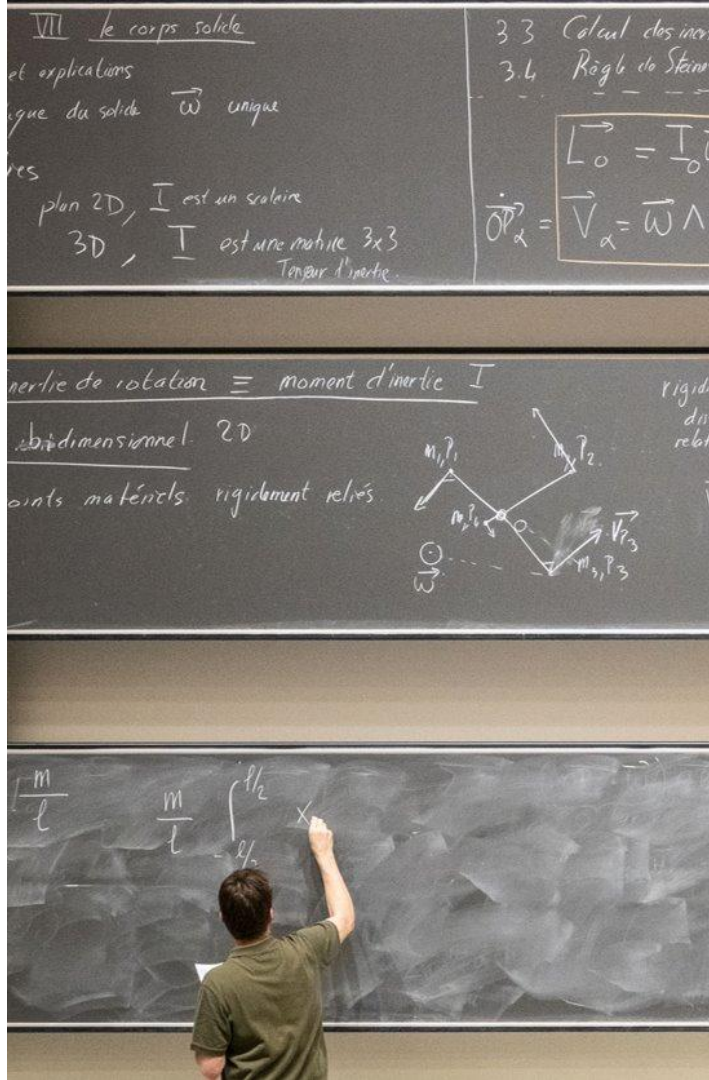 VII le corps solide
et explications
ique du solide ω⃗ unique
res
plan 2D, I est un scalaire
3D, I est une matrice 3x3
Tenseur d'inertie.
3.3 Calcul des iner
3.4 Règle de Steine
L⃗_O = I_O
ȮP⃗_α = V⃗_α = ω⃗ ∧
nertie de rotation ≡ moment d'inertie I
bidimensionnel 2D
oints matériels rigidement reliés
m₁, P₁
m₂, P₂
O
V⃗_P₃
m₃, P₃
ω⃗
rigid
dis
relat
m/l
m/l ∫_{-l/2}^{l/2} x